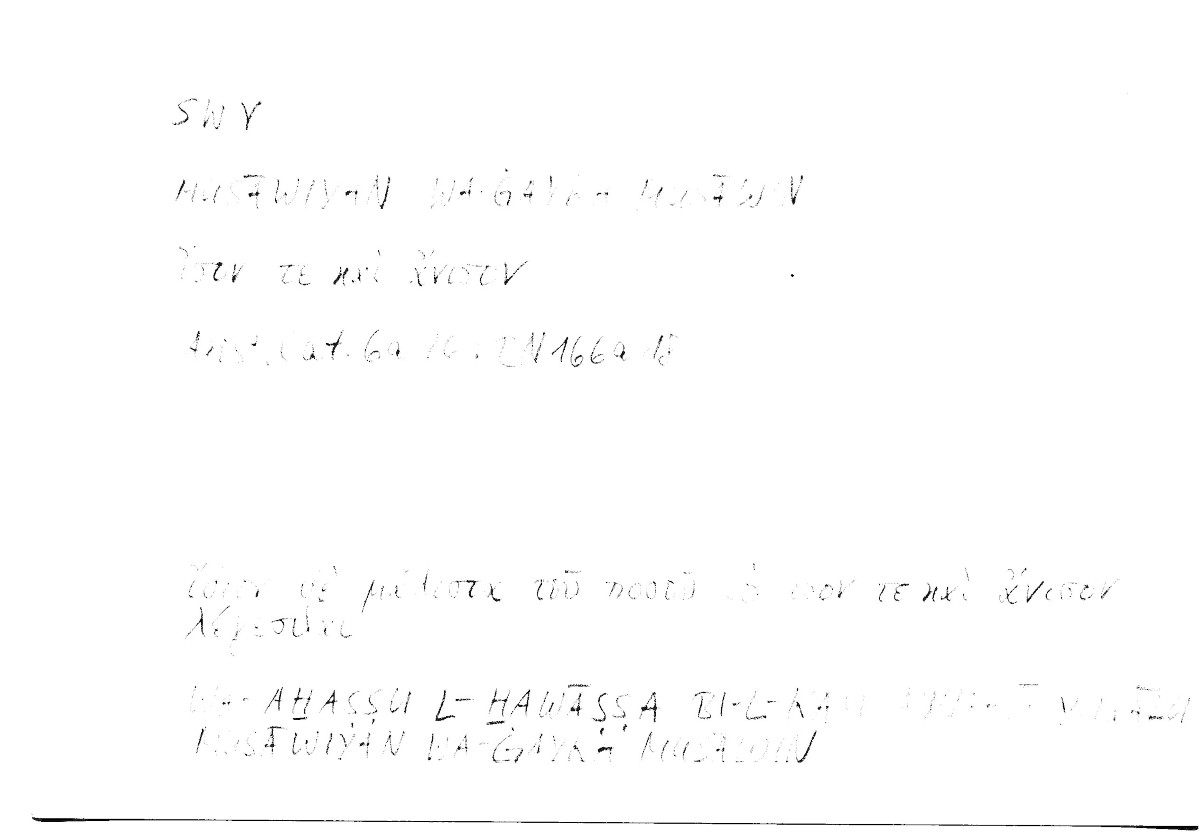 SWY
MUSĀWIYAN WA-ĠAYRA MUSĀWIN
ἴσον τε καὶ ἄνισον
Arist. Cat. 6a 26 : IN166a 18
ἴδιον δὲ μάλιστα τοῦ ποσοῦ τὸ ἴσον τε καὶ ἄνισον
λέγεσθαι
WA-AḪAṢṢU L-ḪAWĀṢṢA BI-L-KAM YUQĀLU
MUSĀWIYAN WA-ĠAYRA MUSĀWIN